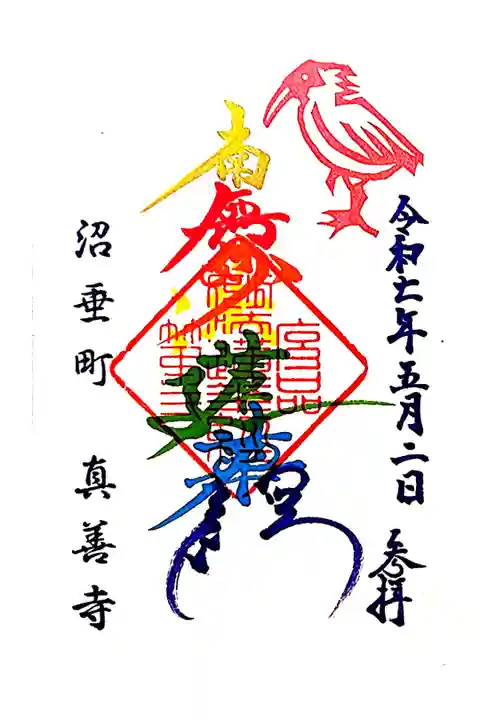 令和七年五月二日 参拝
南無妙法蓮華経
沼垂町 真善寺